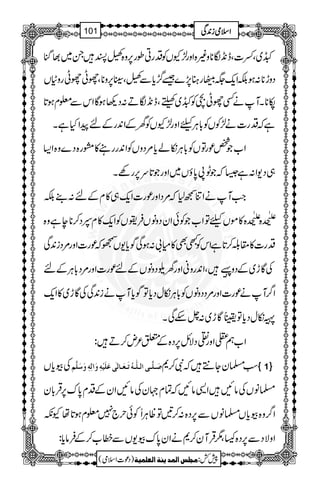 اسلامی زندگی
101
کبڈی، کسرت، ڈنڈ لگانا وغیرہ اور لڑکیوں کو قدرتی طور پر وہ کھیل پسند ہیں جن میں بھاگنا
دوڑنا نہ ہو بلکہ ایک جگہ بیٹھا رہنا پڑے جیسے گڑیا سے کھیل، سینا، پرونا، چھوٹی چھوٹی روٹیاں
پکانا۔ آپ نے کسی چھوٹی بچی کو کبڈی کھیلتے، ڈنڈ لگاتے نہ دیکھا ہوگا اس سے معلوم ہوتا
ہے کہ قدرت نے لڑکوں کو باہر کیلئے اور لڑکیوں کو گھر کے اندر کے لئے پیدا کیا ہے۔
اب جو شخص عورتوں کو باہر نکالے یا مردوں کو اندر رہنے کا مشورہ دے وہ ایسا ہی
دیوانہ ہے جیسا کہ جو ٹوپی پاؤں میں اور جوتا سر پر رکھے۔
جب آپ نے اتنا سمجھ لیا کہ مرد اور عورت ایک ہی کام کے لئے نہ بنے بلکہ
علیٰحدہ علیٰحدہ کاموں کیلئے تو اب جو کوئی ان دونوں فریقوں کو ایک کام سپرد کرنا چاہے وہ
قدرت کا مقابلہ کرتا ہے اس کو کبھی بھی کامیابی نہ ہوگی یوں سمجھو کہ عورت اور مرد زندگی
کی گاڑی کے دو پہیے ہیں، اندرونی اور گھریلو دونوں کیلئے عورت اور باہر کے لئے مرد
اگر آپ نے عورت اور مرد دونوں کو باہر نکال دیا تو گویا آپ نے زندگی کی گاڑی کا ایک
پہیہ نکال دیا یقیناً گاڑی نہ چل سکے گی۔
اب ہم عقلی اور نقلی دلائل پردہ کے متعلق عرض کرتے ہیں:
{1} سب مسلمان جانتے ہیں کہ نبی کریم صَلَّی اللّٰہُ تَعَالٰی عَلَیْہِ وَاٰلِہٖ وَسَلَّم کی بیویاں
مسلمانوں کی مائیں ہیں ایسی مائیں کہ تمام جہان کی مائیں ان کے قدم پاک پر قربان
اگر وہ بیویاں مسلمانوں سے پردہ نہ کرتیں تو ظاہراً کوئی حرج نہیں معلوم ہوتا تھا کیونکہ
اولاد سے پردہ کیسا، مگر قرآن کریم نے ان پاک بیویوں سے خطاب کر کے فرمایا:
پیش کش: مجلس المدینۃ العلمیۃ (دعوت اسلامی)